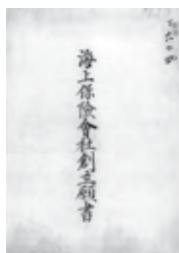 海上保險會社創立願書